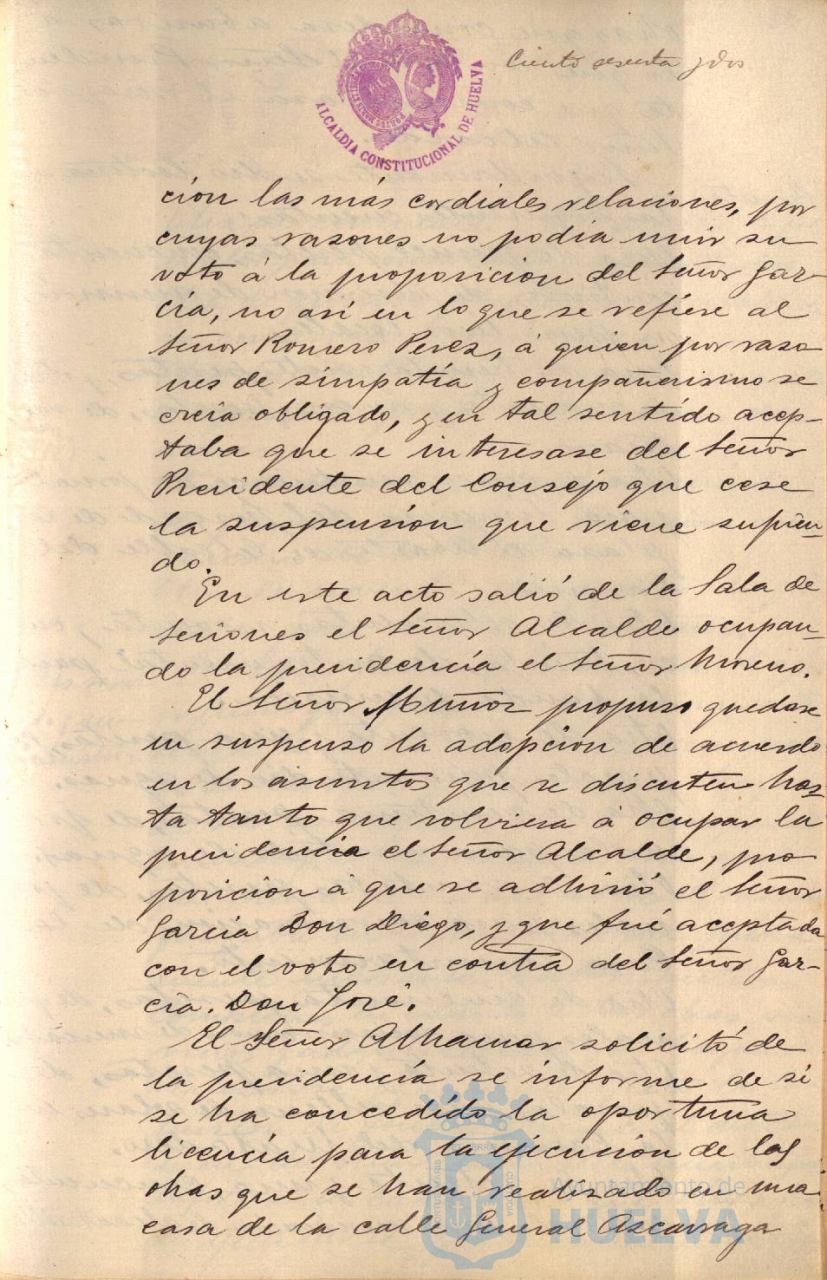 Ciento sesenta y dos
ALCALDIA CONSTITUCIONAL DE HUELVA
ción las más cordiales relaciones, por
cuyas razones no podía unir su
voto á la proposicion del Señor Gar-
cía, no así en lo que se refiere al
Señor Romero Perez, á quien por razo
nes de simpatía y compañerismo se
creía obligado, y en tal sentido acep-
taba que se interesase del Señor
Presidente del Consejo que cese
la suspensión que viene sufrien-
do.
En este acto salió de la Sala de
Sesiones el Señor Alcalde ocupan-
do la presidencia el Señor Moreno.
El Señor Muñoz propuso quedase
en suspenso la adopcion de acuerdo
en los asuntos que se discuten has-
ta tanto que volviera á ocupar la
presidencia el Señor Alcalde, pro
posicion á que se adhirió el Señor
García Don Diego, y que fué aceptada
con el voto en contra del Señor Gar-
cía. Don José.
El Señor Alhamar solicitó de
la presidencia se informe de si
se ha concedido la oportuna
licencia para la ejecución de las
obras que se han realizado en una
casa de la calle General Azcarraga
Ayuntamiento de
HUELVA